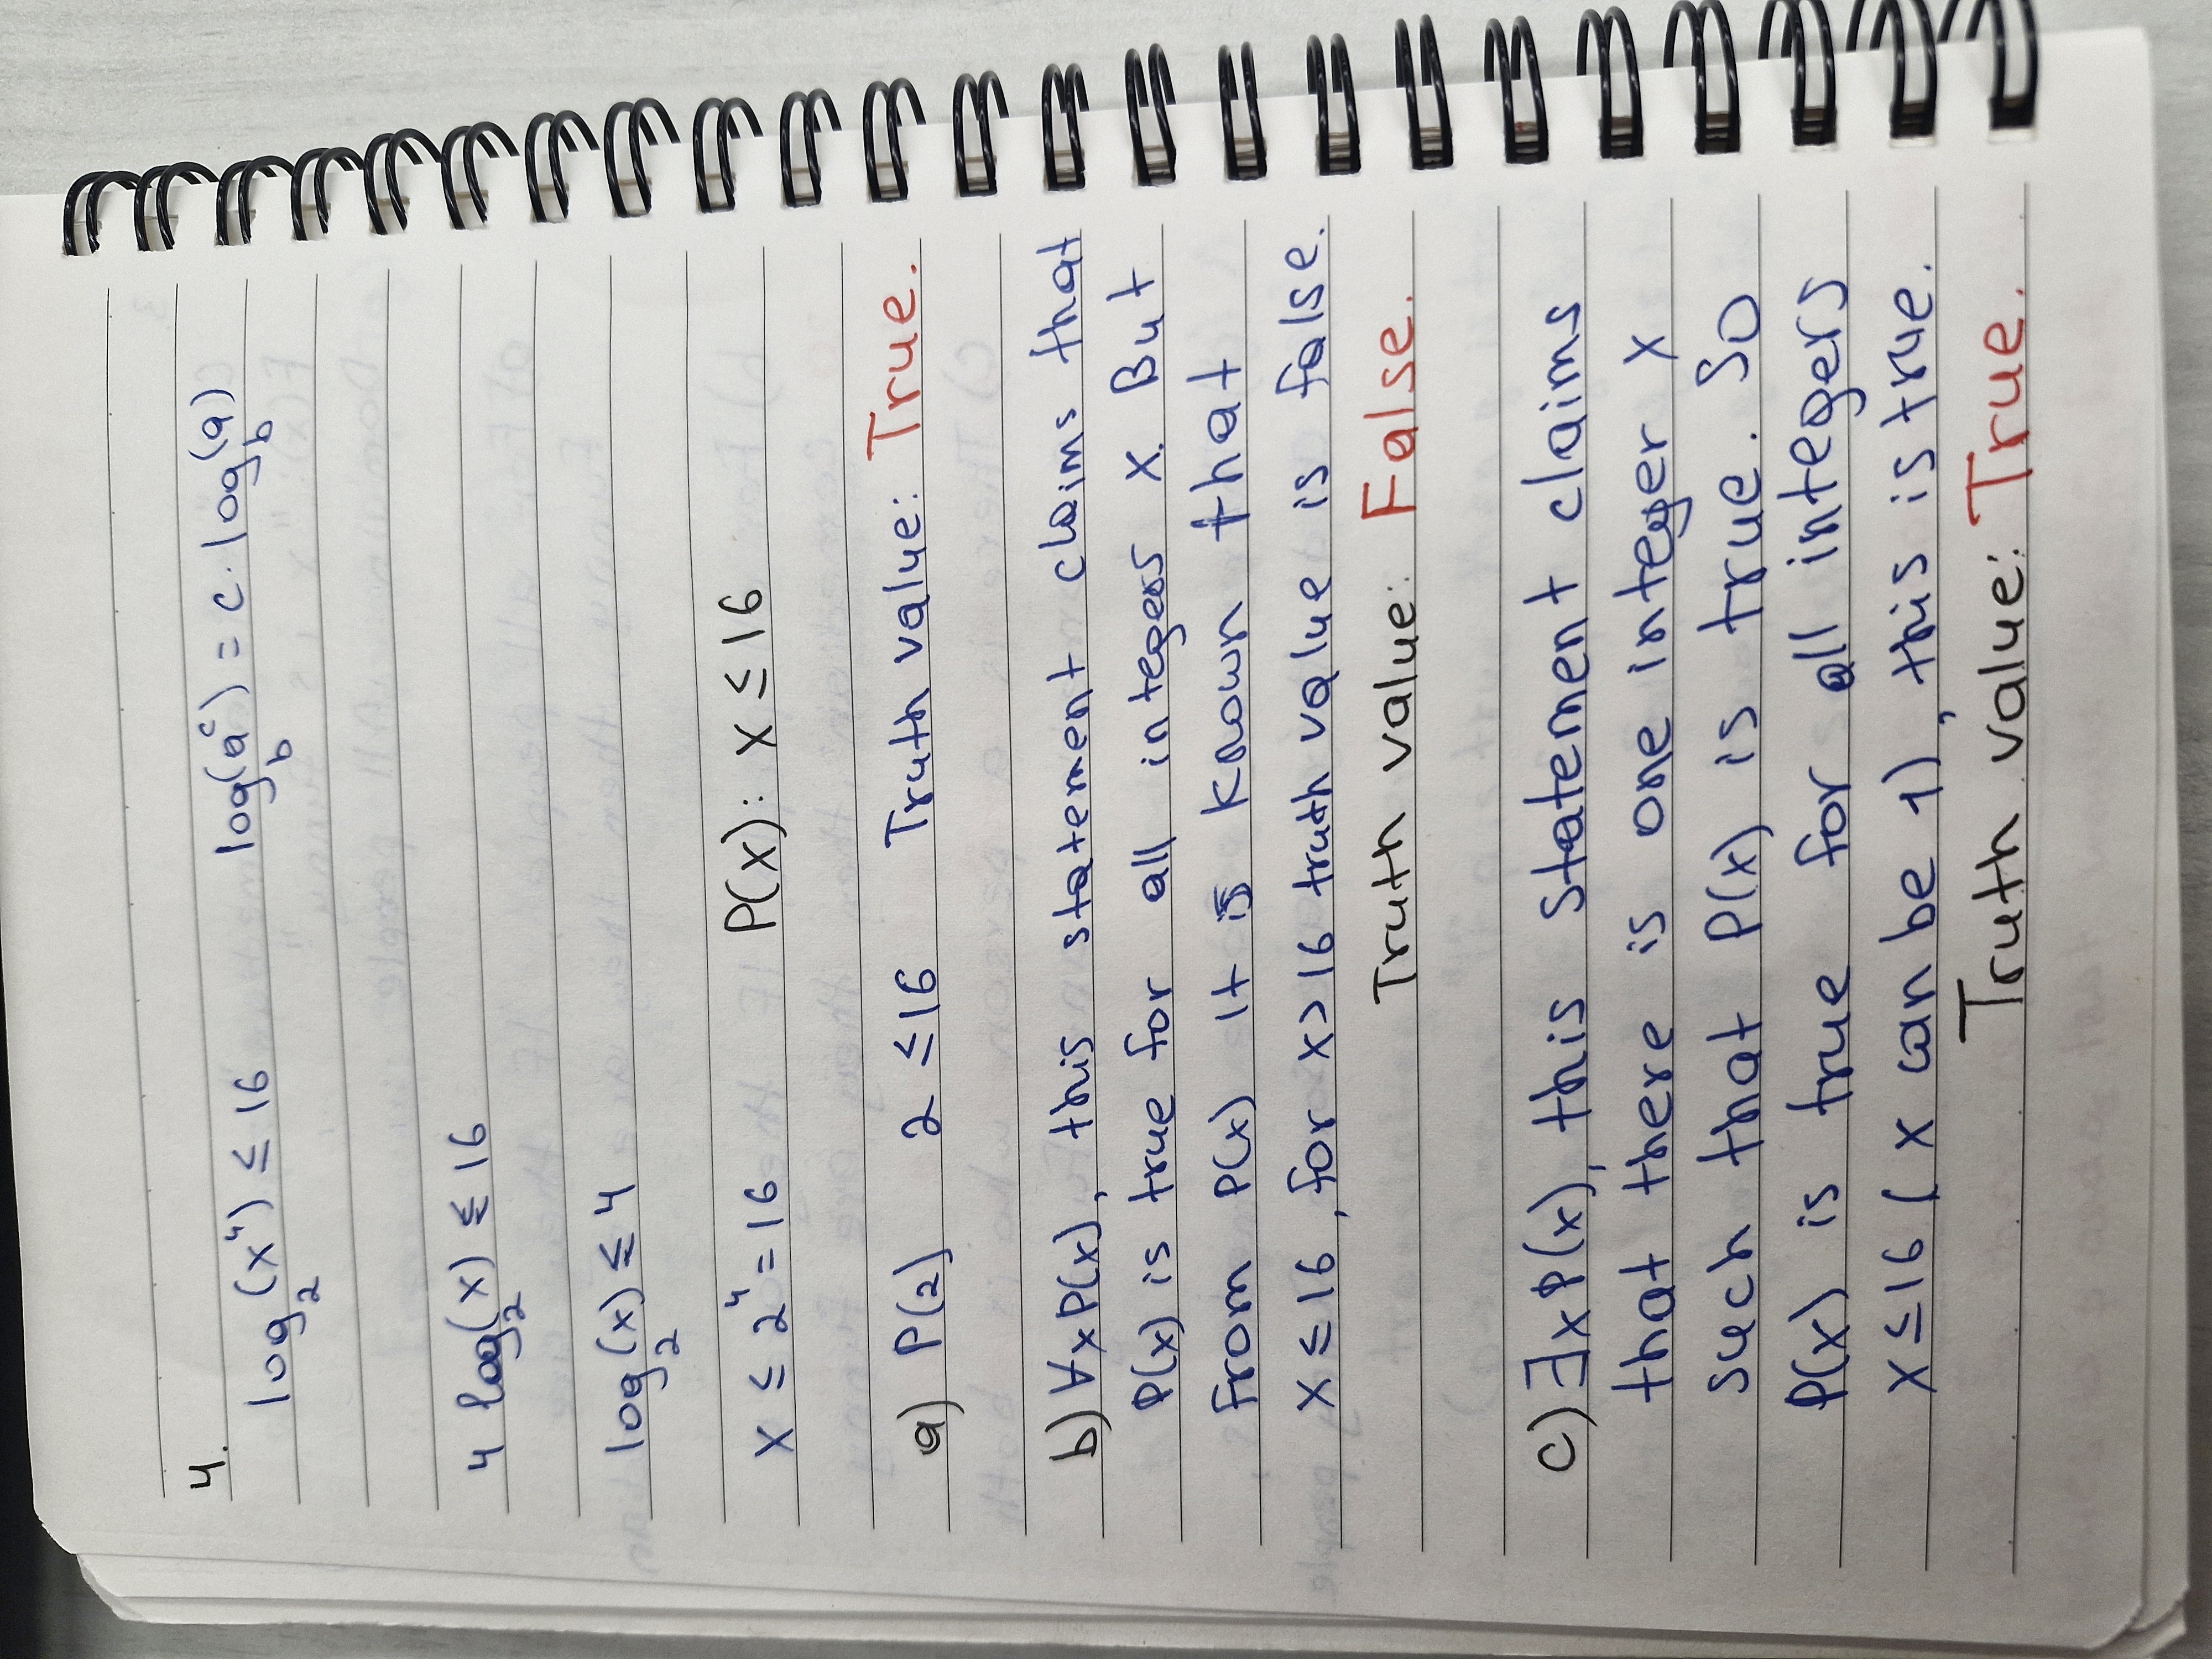 4.
log₂(x⁴) ≤ 16 log_b(a^c) = c · log_b(a)
4 log₂(x) ≤ 16
log₂(x) ≤ 4
x ≤ 2⁴ = 16 P(x): x ≤ 16
a) P(2) 2 ≤ 16 Truth value: True.
b) ∀x P(x), this statement claims that
P(x) is true for all integers x. But
From P(x) It is known that
x ≤ 16, for x > 16 truth value is false.
Truth value: False.
c) ∃x P(x), this statement claims
that there is one integer x
such that P(x) is true. So
P(x) is true for all integers
x ≤ 16 (x can be 1), this is true.
Truth value: True.